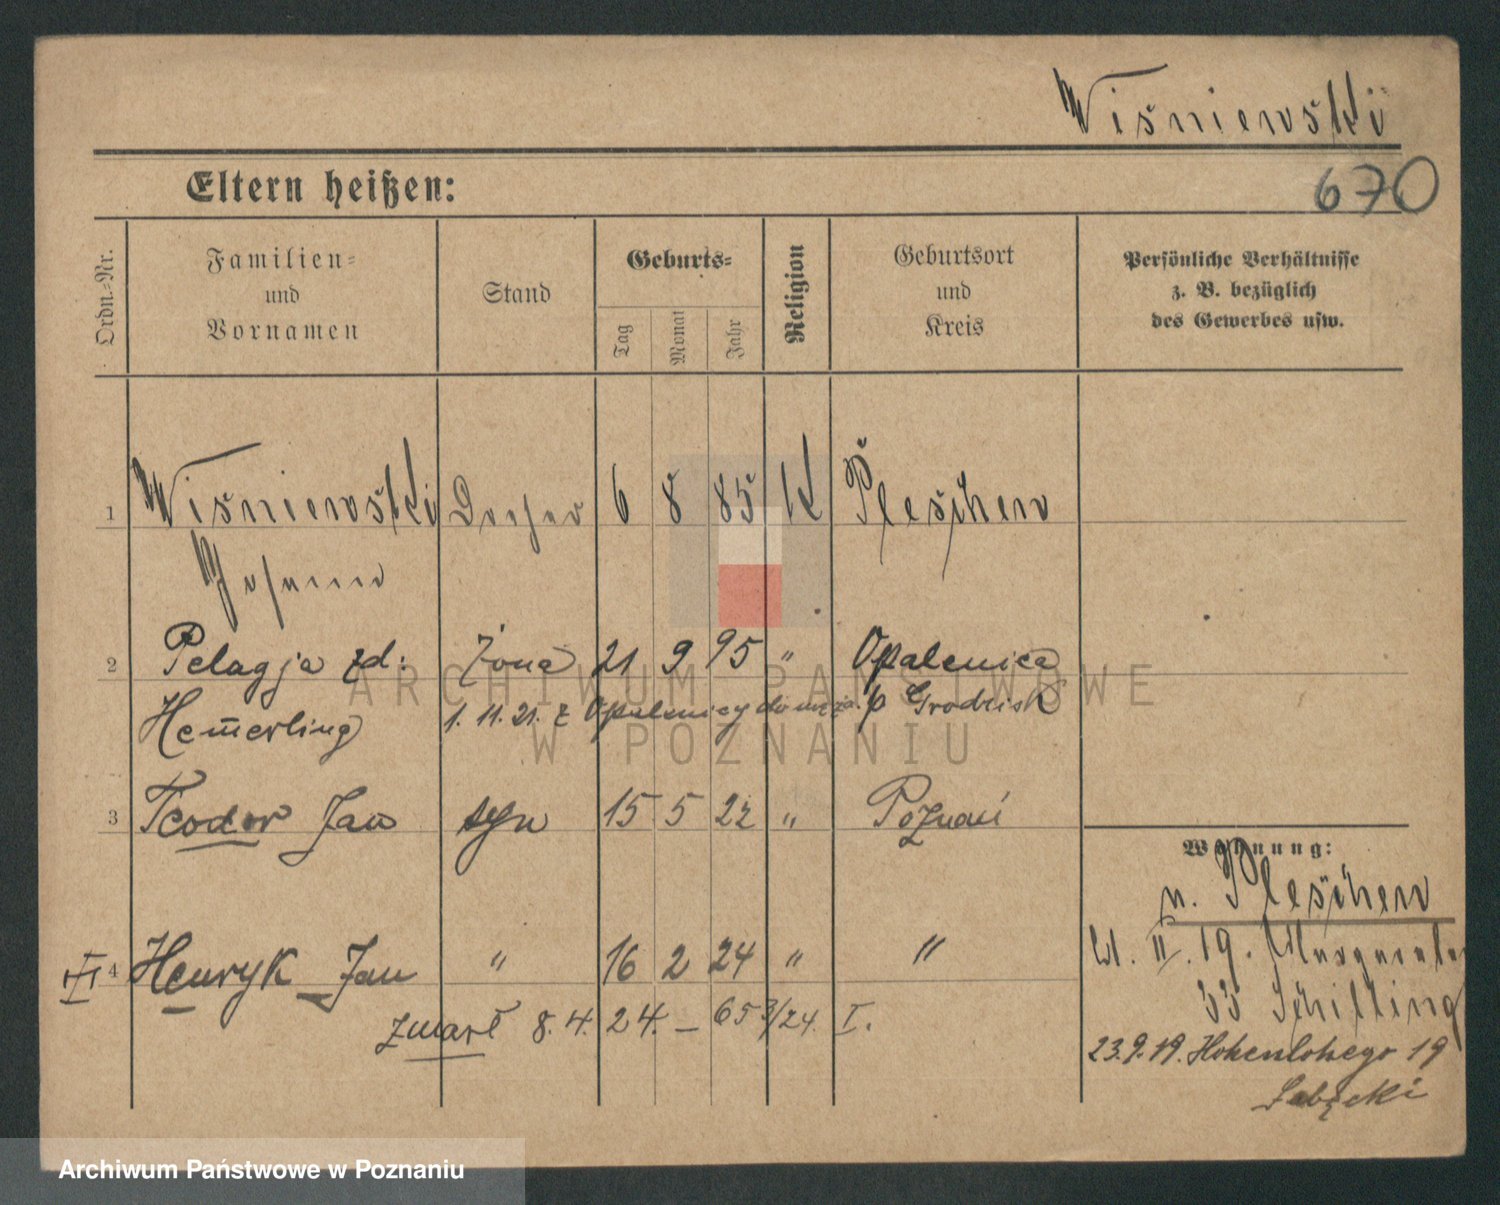 Wiśniewski
670
Eltern heißen:
Ordn.-Nr.
Familien- und Vornamen
Stand
Geburts-
Tag
Monat
Jahr
Religion
Geburtsort und Kreis
Persönliche Verhältnisse z. B. bezüglich des Gewerbes usw.
1 Wiśniewski 6 8 85 K Pleschen
Johann
2 Pelagja zd: żona 21 9 95 " Opalenica
Hemerling 1. 11. 21. z Opalenicy do męża. p Grodzisk
3 Teodor Jan syn 15 5 22 " Poznań
Wohnung:
n. Pleschen
4 Henryk Jan " 16 2 24 " "
II. 19.
33 Schilling
zmarł 8. 4. 24. – 65 3/24. I.
23.9.19. Hohenlohego 19
ARCHIWUM PAŃSTWOWE
W POZNANIU
Archiwum Państwowe w Poznaniu